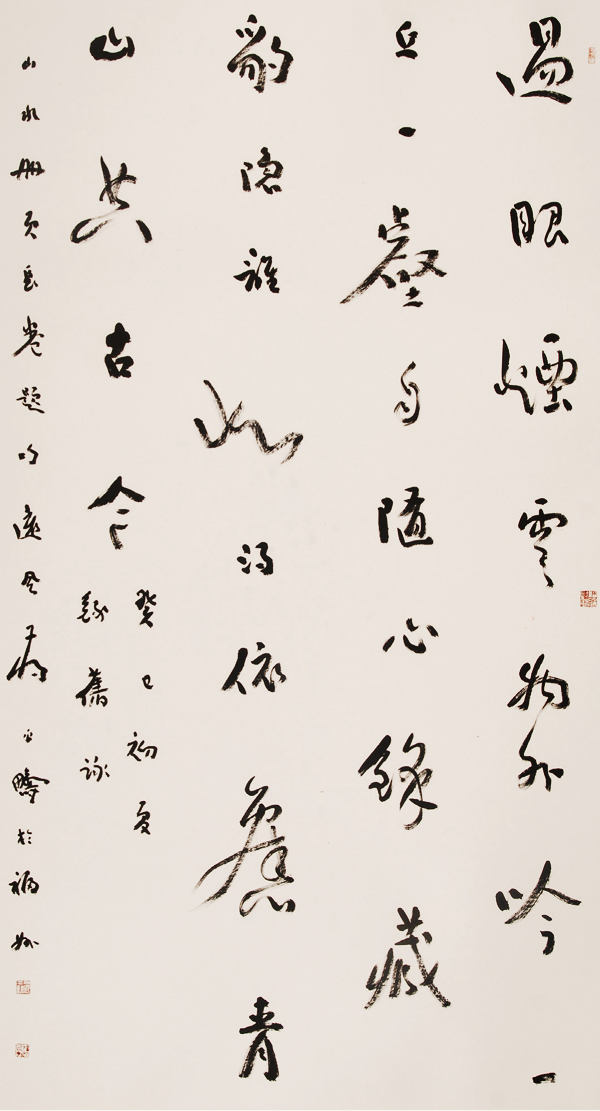 過眼煙雲物外吟一
丘一壑自隨心鋒藏
豹隱誰得依舊青
山共古今
癸巳初夏
錄舊詠
山水册頁長卷題疇於福州